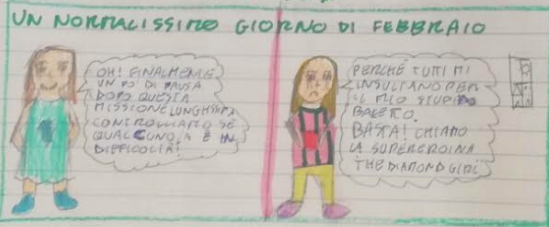 UN NORMALISSIMO GIORNO DI FEBBRAIO
OH! FINALMENTE
UN PO DI PAUSA
DOPO QUESTA
MISSIONE LUNGHISSIMA
CONTROLLIAMO SE
QUALCUNO È IN
DIFFICOLTÀ!
PERCHÉ TUTTI MI
INSULTANO PER
IL MIO STUPIDO
BASTA! CHIAMO
LA SUPEREROINA
THE DIAMOND GIRL